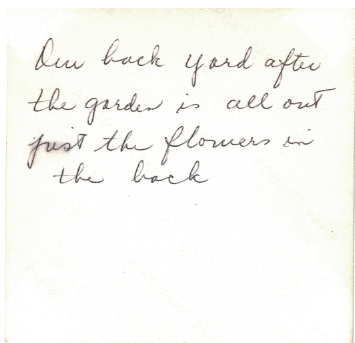 Our back yard after
the garden is all out
just the flowers in
the back